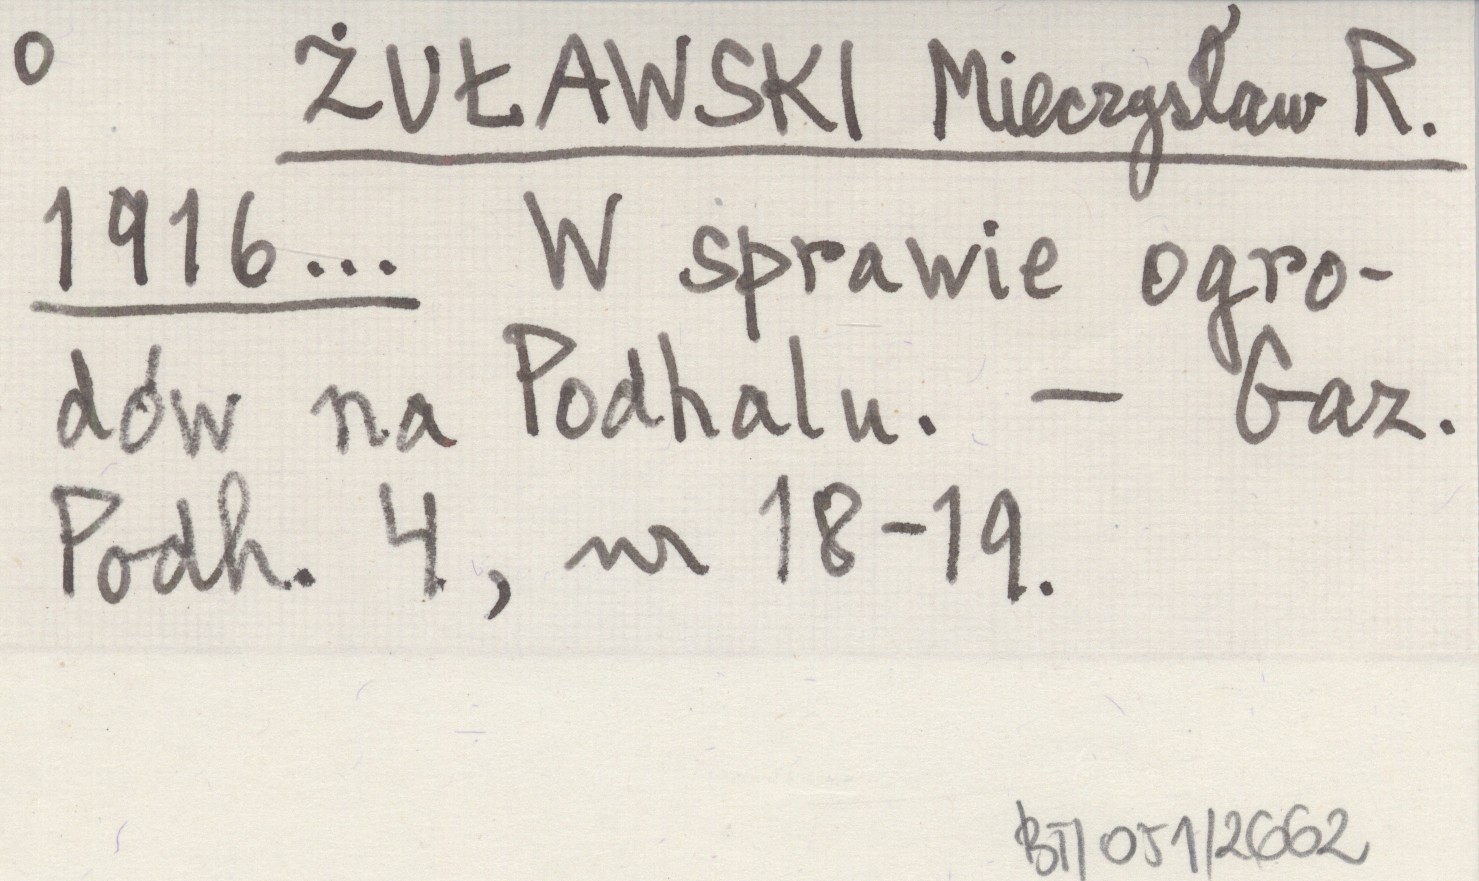 o ŻUŁAWSKI Mieczysław R.
1916... W sprawie ogro-
dów na Podhalu. — Gaz.
Podh. 4, nr 18-19.
BT/051/2662